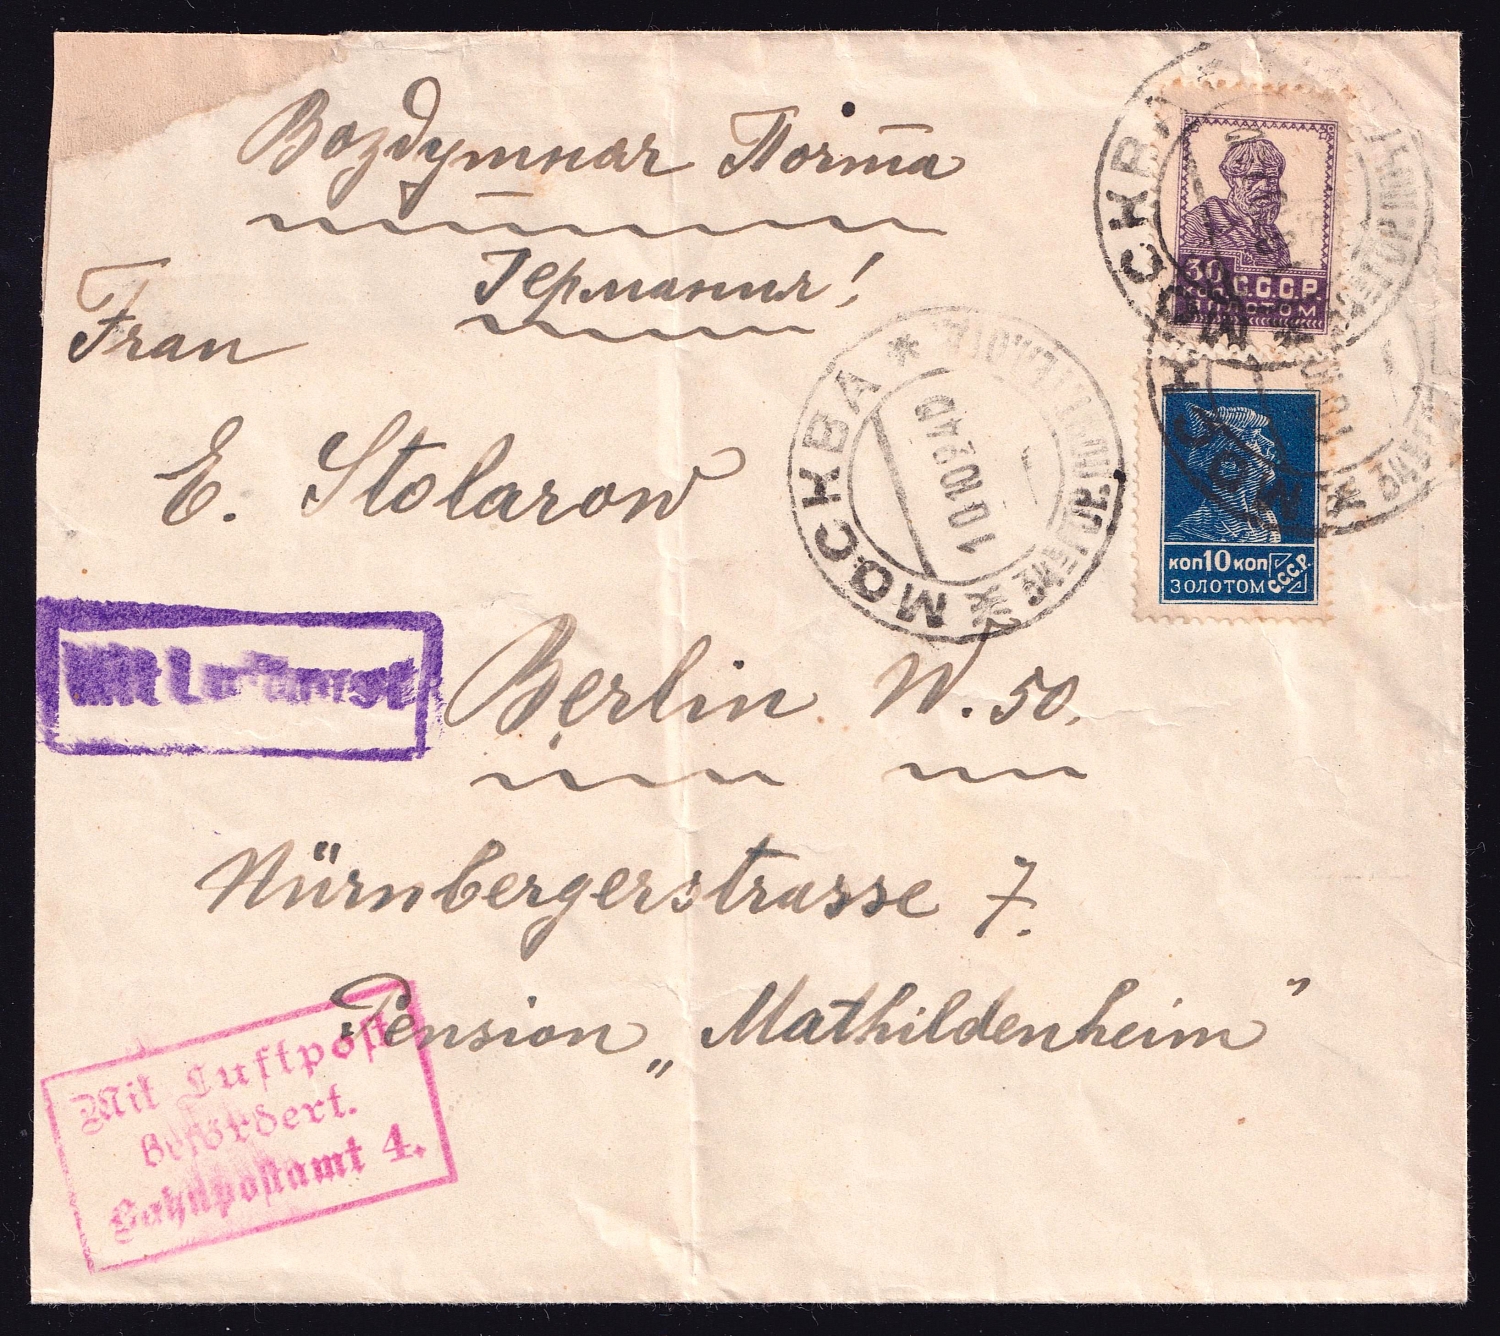 Воздушная Почта
Германия!
Frau
E. Stolarow
Berlin W. 50.
Nürnbergerstrasse 7.
Pension „Mathildenheim"
30 КОП. С.С.С.Р.
ЗОЛОТОМ
КОП 10 КОП
ЗОЛОТОМ С.С.С.Р.
МОСКВА
МОСКВА
МОСКВА
10.10.24
Mit Luftpost
Mit Luftpost
befördert.
Bahnpostamt 4.